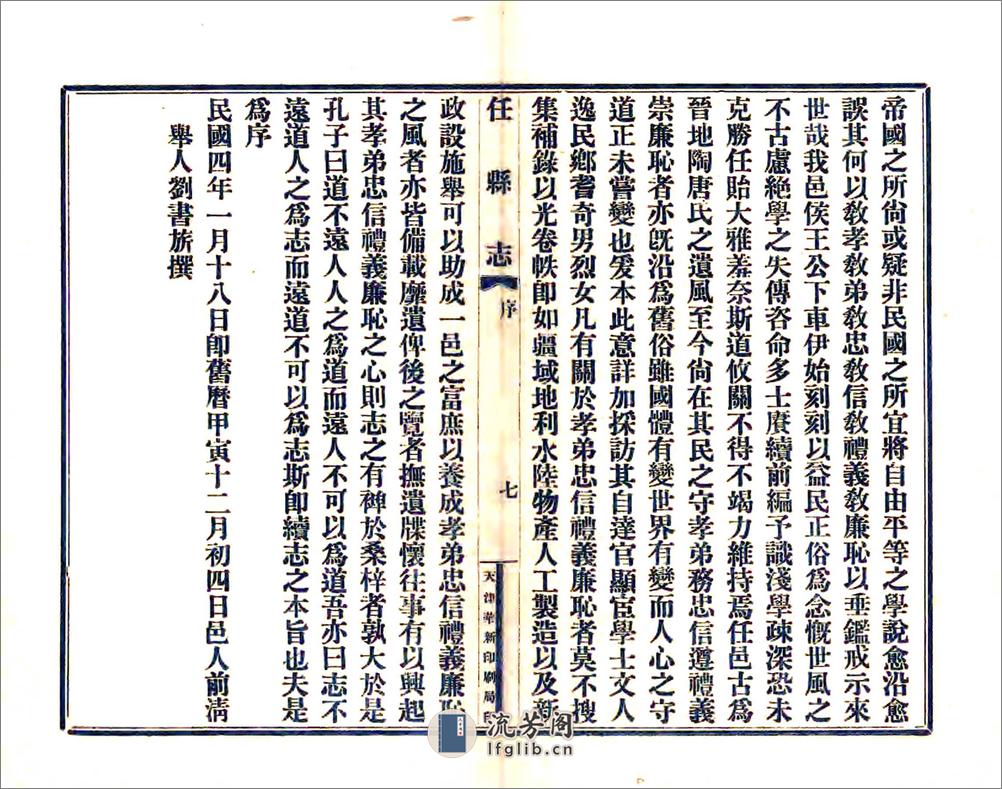 帝國之所尙或疑非民國之所宜將自由平等之學說愈沿愈
誤其何以敎孝敎弟敎忠敎信敎禮義敎廉恥以垂鑑戒示來
世哉我邑侯王公下車伊始刻刻以益民正俗爲念慨世風之
不古慮絶學之失傳咨命多士賡續前編予識淺學疎深恐未
克勝任貽大雅羞奈斯道攸關不得不竭力維持焉任邑古爲
晉地陶唐氏之遺風至今尙在其民之守孝弟務忠信遵禮義
崇廉恥者亦旣沿爲舊俗雖國體有變世界有變而人心之守
道正未嘗變也爰本此意詳加採訪其自達官顯宦學士文人
逸民鄕耆奇男烈女凡有關於孝弟忠信禮義廉恥者莫不搜
集補錄以光卷帙卽如疆域地利水陸物產人工製造以及新
任縣志 序 七 天津華新印刷局
政設施舉可以助成一邑之富庶以養成孝弟忠信禮義廉恥
之風者亦皆備載靡遺俾後之覽者撫遺牒懷往事有以興起
其孝弟忠信禮義廉恥之心則志之有裨於桑梓者孰大於是
孔子曰道不遠人人之爲道而遠人不可以爲道吾亦曰志不
遠道人之爲志而遠道不可以爲志斯卽續志之本旨也夫是
爲序
民國四年一月十八日卽舊曆甲寅十二月初四日邑人前淸
舉人劉書旂撰
流芳閣
lfglib.cn